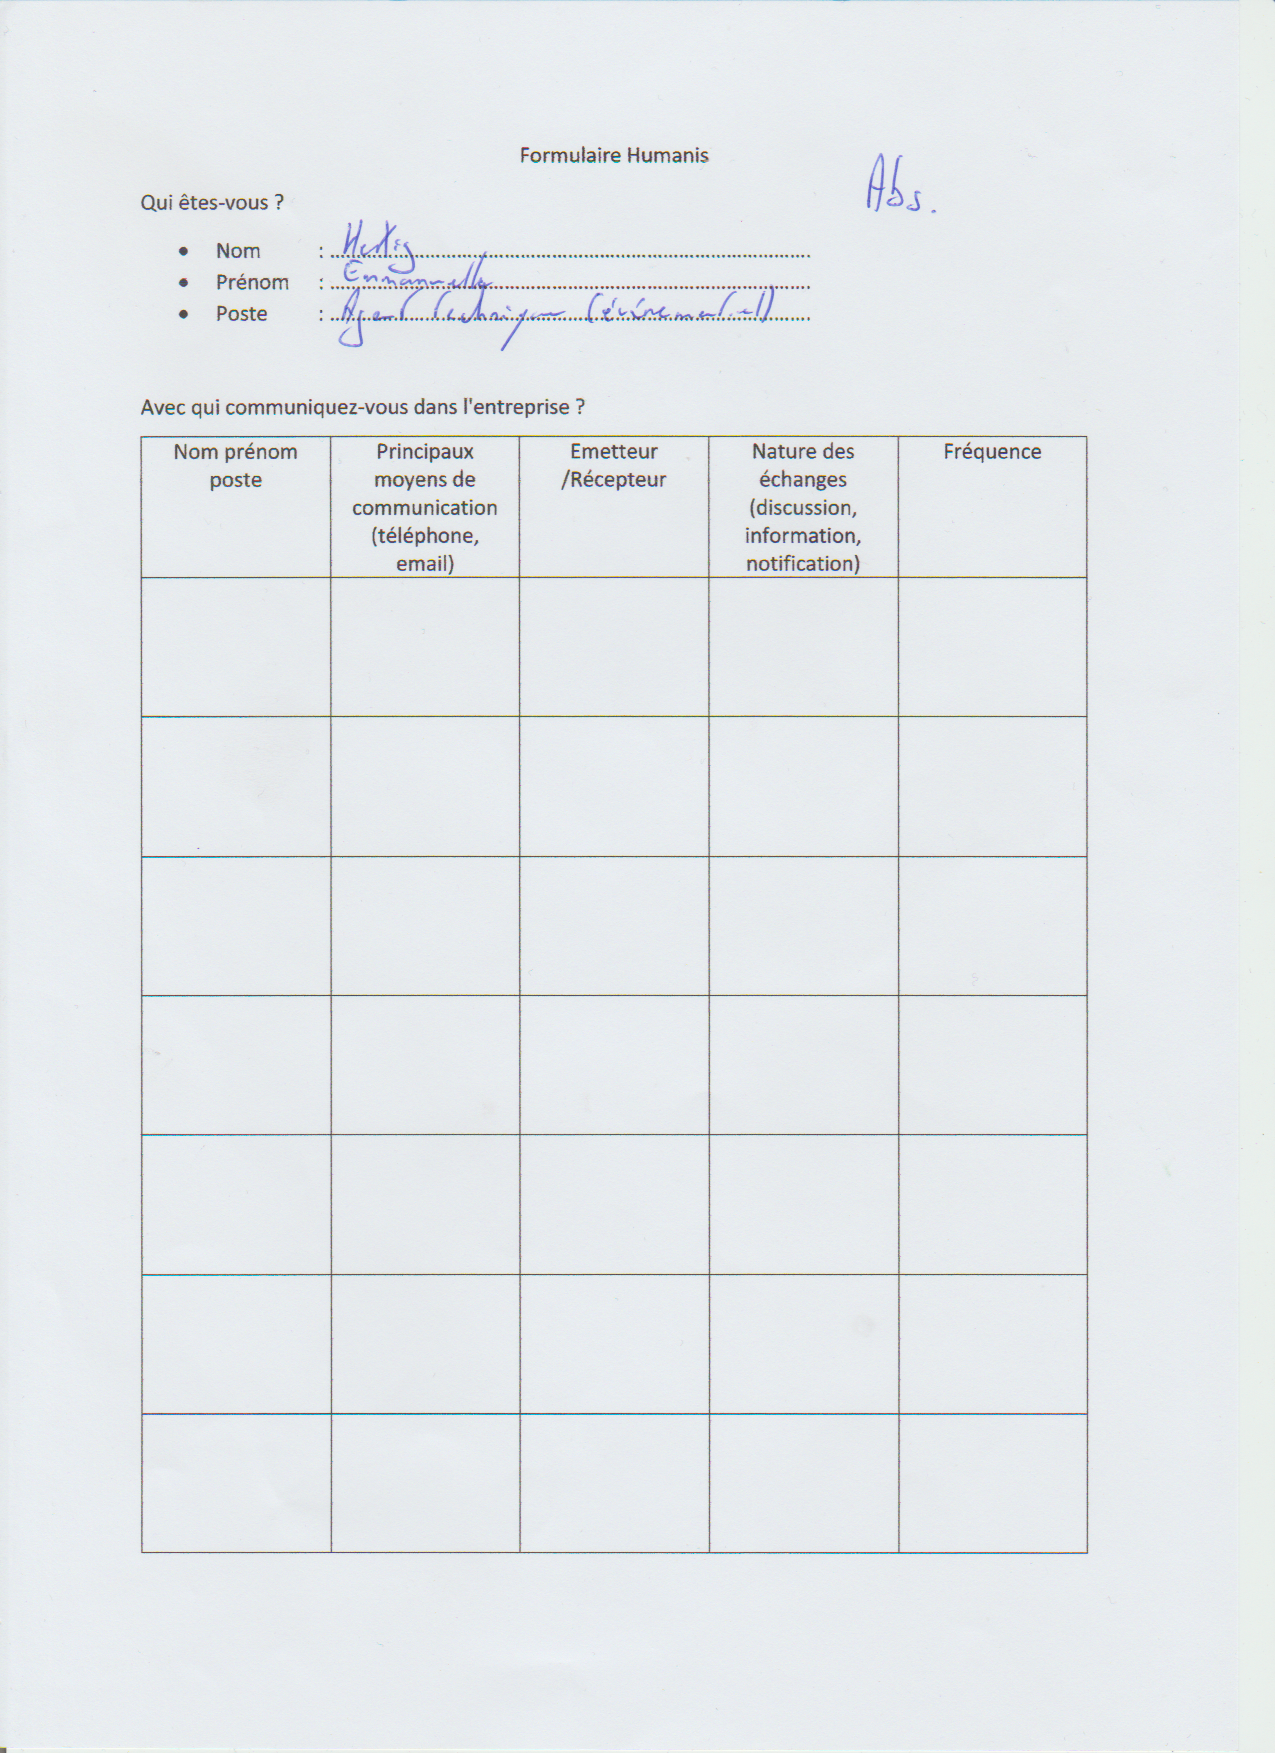 Formulaire Humanis
Abs.
Qui êtes-vous ?
• Nom : Hertig
• Prénom : Emmanuelle
• Poste : Agent technique (événementiel)
Avec qui communiquez-vous dans l'entreprise ?
Nom prénom
poste
Principaux
moyens de
communication
(téléphone,
email)
Emetteur
/Récepteur
Nature des
échanges
(discussion,
information,
notification)
Fréquence